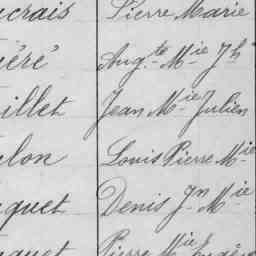 ucrais Pierre Marie
éré Aug.te M.ie Jh
illet Jean M.ie Julien
lon Louis Pierre M.ie
quet Denis Jn M.ie
quet Pierre M.ie